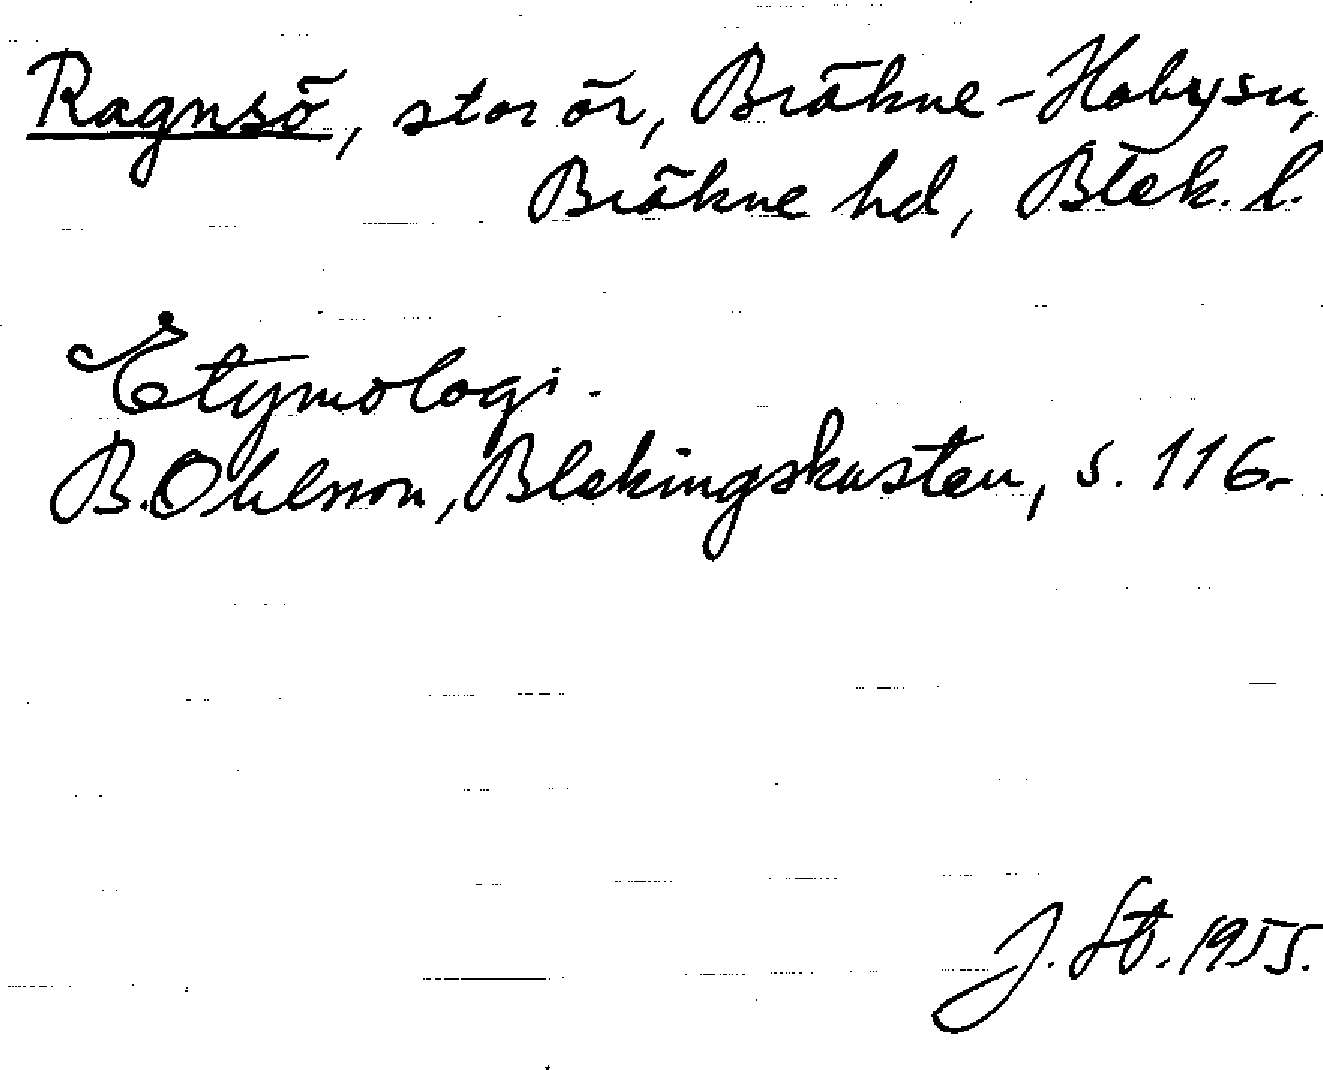 Ragnsö, stor ör, Bräkne-Hobysn,
Bräkne hd, Blek. l.
Etymologi.
B. Ohlsson, Blekingskusten, s. 116.
J. St. 1955.